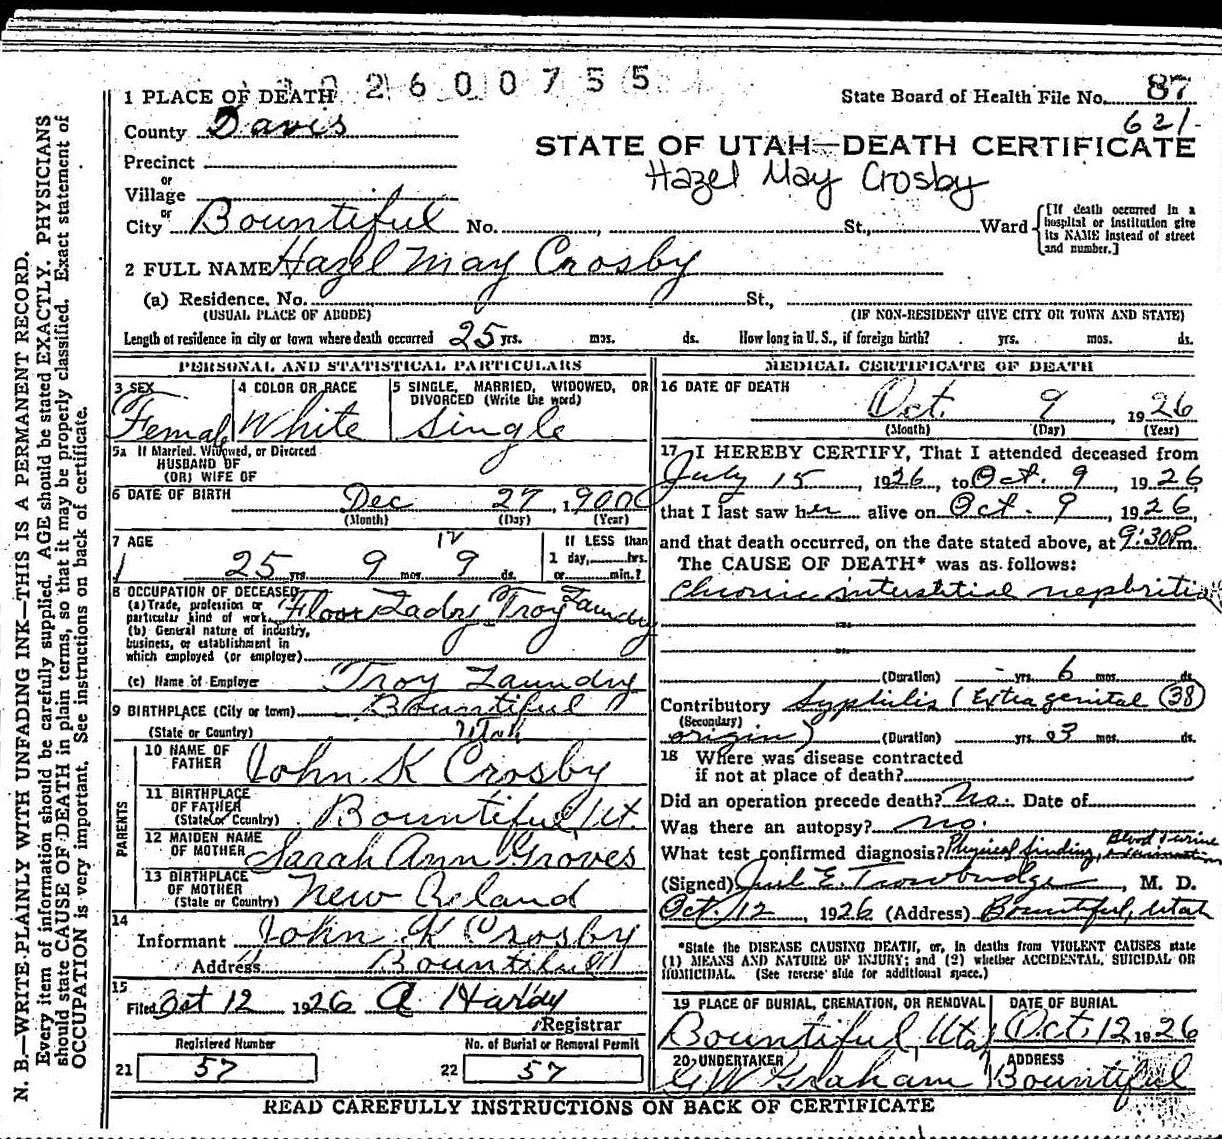 2600755
1 PLACE OF DEATH
State Board of Health File No. 87
County Davis
621
STATE OF UTAH—DEATH CERTIFICATE
Precinct
Hazel May Crosby
or
Village
or
City Bountiful No. , St., Ward
[If death occurred in a
hospital or institution give
its NAME instead of street
and number.]
2 FULL NAME Hazel May Crosby
(a) Residence, No. St.,
(USUAL PLACE OF ABODE) (IF NON-RESIDENT GIVE CITY OR TOWN AND STATE)
Length of residence in city or town where death occurred 25 yrs. mos. ds. How long in U. S., if foreign birth? yrs. mos. ds.
PERSONAL AND STATISTICAL PARTICULARS
3 SEX 4 COLOR OR RACE 5 SINGLE, MARRIED, WIDOWED, OR
DIVORCED (Write the word)
Female White Single
5a If Married, Widowed, or Divorced
HUSBAND OF
(OR) WIFE OF
6 DATE OF BIRTH Dec 27, 1900
(Month) (Day) (Year)
7 AGE
25 yrs. 9 mos. 9 ds.
12
If LESS than
1 day, hrs.
or min.?
8 OCCUPATION OF DECEASED
(a) Trade, profession or
particular kind of work Floor Lady Troy Laundry
(b) General nature of industry,
business, or establishment in
which employed (or employer)
(c) Name of Employer Troy Laundry
9 BIRTHPLACE (City or town) Bountiful
(State or Country) Utah
PARENTS
10 NAME OF
FATHER John K Crosby
11 BIRTHPLACE
OF FATHER
(State or Country) Bountiful, Ut.
12 MAIDEN NAME
OF MOTHER Sarah Ann Groves
13 BIRTHPLACE
OF MOTHER
(State or Country) New
14
Informant John K Crosby
Address Bountiful
15
Filed Oct 12 1926 A Hardy
Registrar
Registered Number No. of Burial or Removal Permit
21 57 22 57
MEDICAL CERTIFICATE OF DEATH
16 DATE OF DEATH
Oct. 9 1926
(Month) (Day) (Year)
17 I HEREBY CERTIFY, That I attended deceased from
July 15, 1926, to Oct. 9 1926,
that I last saw her alive on Oct. 9, 1926,
and that death occurred, on the date stated above, at 9:30 P.m.
The CAUSE OF DEATH* was as follows:
Chronic interstitial nephritis
(Duration) yrs. 6 mos. ds
Contributory Syphilis (Extragenital (38)
(Secondary)
origin) (Duration) yrs. 3 mos. ds.
18 Where was disease contracted
if not at place of death?
Did an operation precede death? No. Date of
Was there an autopsy? no.
What test confirmed diagnosis? Physical finding, Blood & urine
examination
(Signed) E. Trowbridge, M. D.
Oct. 12, 1926 (Address) Bountiful, Utah
*State the DISEASE CAUSING DEATH, or, in deaths from VIOLENT CAUSES state
(1) MEANS AND NATURE OF INJURY; and (2) whether ACCIDENTAL, SUICIDAL OR
HOMICIDAL. (See reverse side for additional space.)
19 PLACE OF BURIAL, CREMATION, OR REMOVAL DATE OF BURIAL
Bountiful, Utah Oct. 12, 1926
20 UNDERTAKER ADDRESS
G W Graham Bountiful
READ CAREFULLY INSTRUCTIONS ON BACK OF CERTIFICATE
N. B.—WRITE PLAINLY WITH UNFADING INK—THIS IS A PERMANENT RECORD.
Every item of information should be carefully supplied. AGE should be stated EXACTLY. PHYSICIANS
should state CAUSE OF DEATH in plain terms, so that it may be properly classified. Exact statement of
OCCUPATION is very important. See instructions on back of certificate.